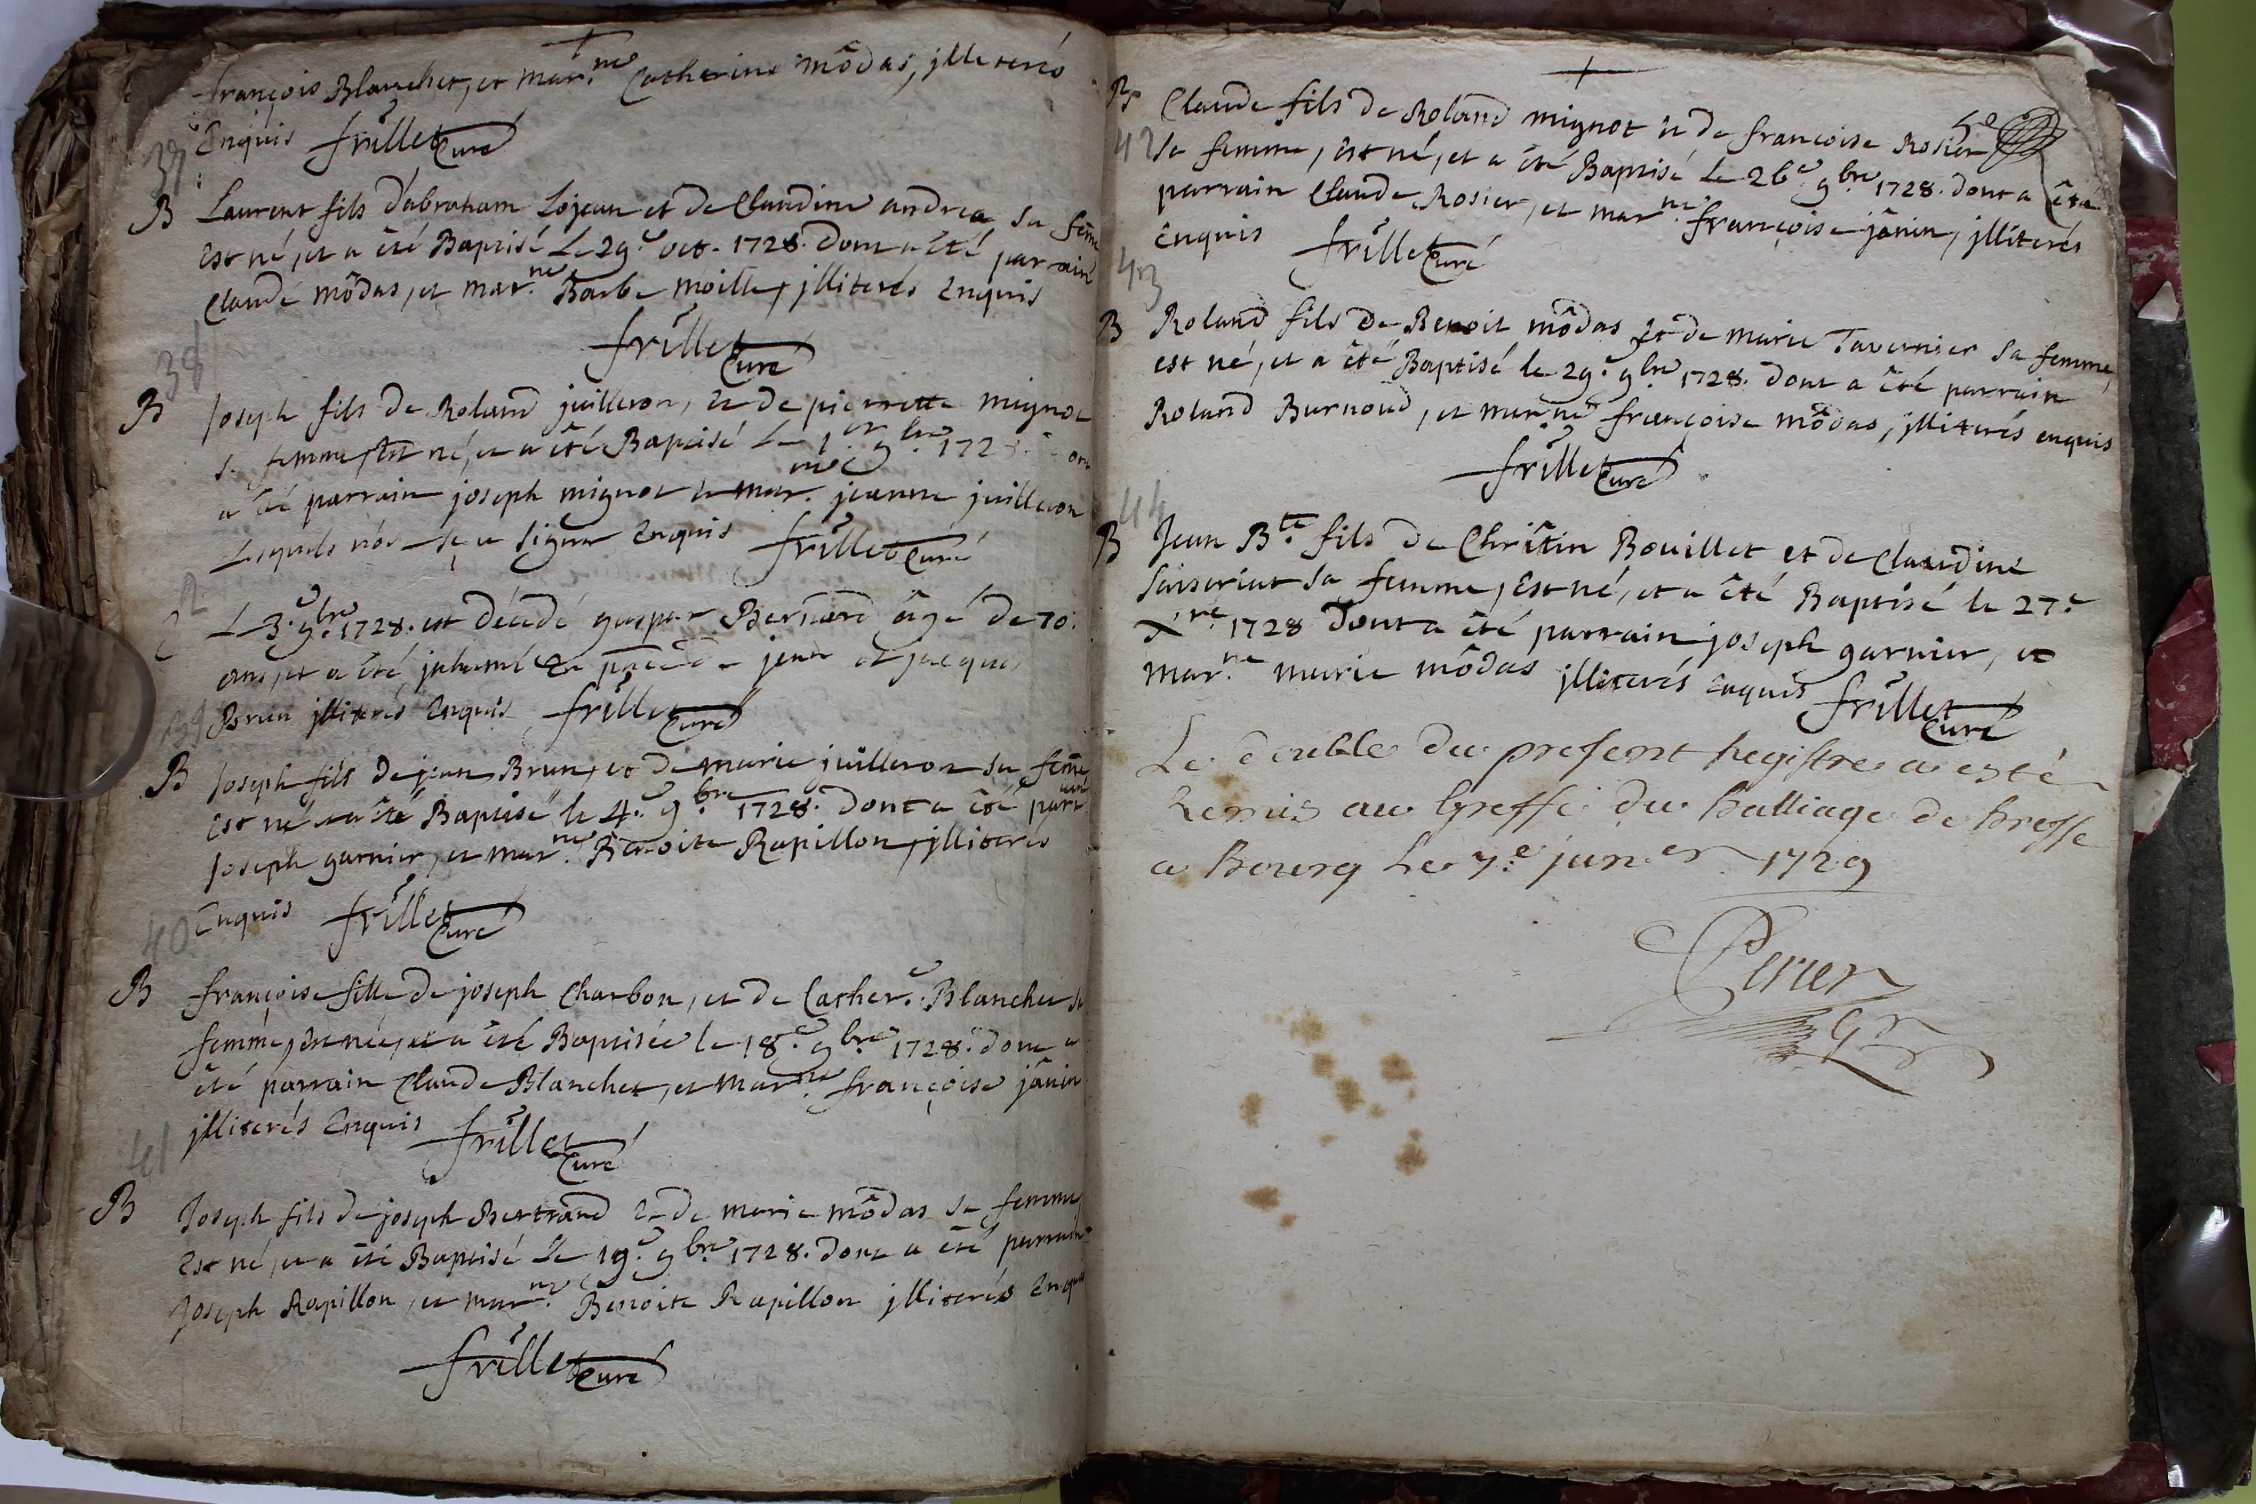 françois Blanchet, et mar.ne Catherine môdas, jlliterés
Enquis frillet Curé
37
B Laurent fils d'abraham Lojean et de Claudine andrea sa fême
est né, et a êté Baptisé Le 29.e oct. 1728. dont a êté parrain
Claude môdas, et mar.ne Barbe moille, jlliterés Enquis
frillet Curé
38
B Joseph fils de Roland juilleron, et de pierrette mignot
sa femme, Est né, et a êté Baptisé Le 1.er 9.bre 1728. dont
a êté parrain joseph mignot et mar.ne jeanne juilleron
Lesquels nôt sçu signer Enquis frillet Curé
12
Le 3.e 9.bre 1728. est décedé gaspar Bernard âgé de 70.
ans, et a êté jnhumé En p̄nce de jean et jacques
Brun jlliterés Enquis frillet Curé
39
B Joseph fils de jean Brun, et de marie juilleron sa fême
Est né et a êté Baptisé le 4.e 9.bre 1728. dont a êté parrain
Joseph garnier, et mar.ne Benoite Rapillon, jlliterés
Enquis frillet Curé
40
B françoise fille de joseph Charbon, et de Cather.e Blanchet sa
femme, Est née, et a êté Baptisée le 18.e 9.bre 1728. dont a
êté parrain Claude Blanchet, et mar.ne françoise jânin
jlliterés Enquis frillet Curé
41
B Joseph fils de joseph Bertrand et de marie môdas sa femme
Est né, et a êté Baptisé Le 19.e 9.bre 1728. dont a êté parrain
Joseph Rapillon, et mar.ne Benoite Rapillon jlliterés Enquis
frillet Curé
B Claude fils de Roland mignot et de françoise Rosier
42 sa femme, Est né, et a êté Baptisé Le 26.e 9.bre 1728. dont a êté
parrain Claude Rosier, et mar.ne françoise jânin, jlliterés
Enquis frillet Curé
43
B Roland fils de Benoit môdas et de marie Tavernier sa femme,
est né, et a êté Baptisé le 29.e 9.bre 1728. dont a êté parrain
Roland Burnoud, et mar.ne françoise môdas, jlliterés enquis
frillet Curé
44
B Jean B.te fils de Chrîtin Bouillet et de Claudine
sa femme, Est né, et a êté Baptisé le 27.e
X.re 1728 dont a êté parrain joseph garnier, et
mar.ne marie môdas jlliterés Enquis frillet Curé
Le double du present Registre a esté
Remis au Greffe du Balliage de Bresse
a Bourg Le 7.e janv.er 1729
Perier
gr